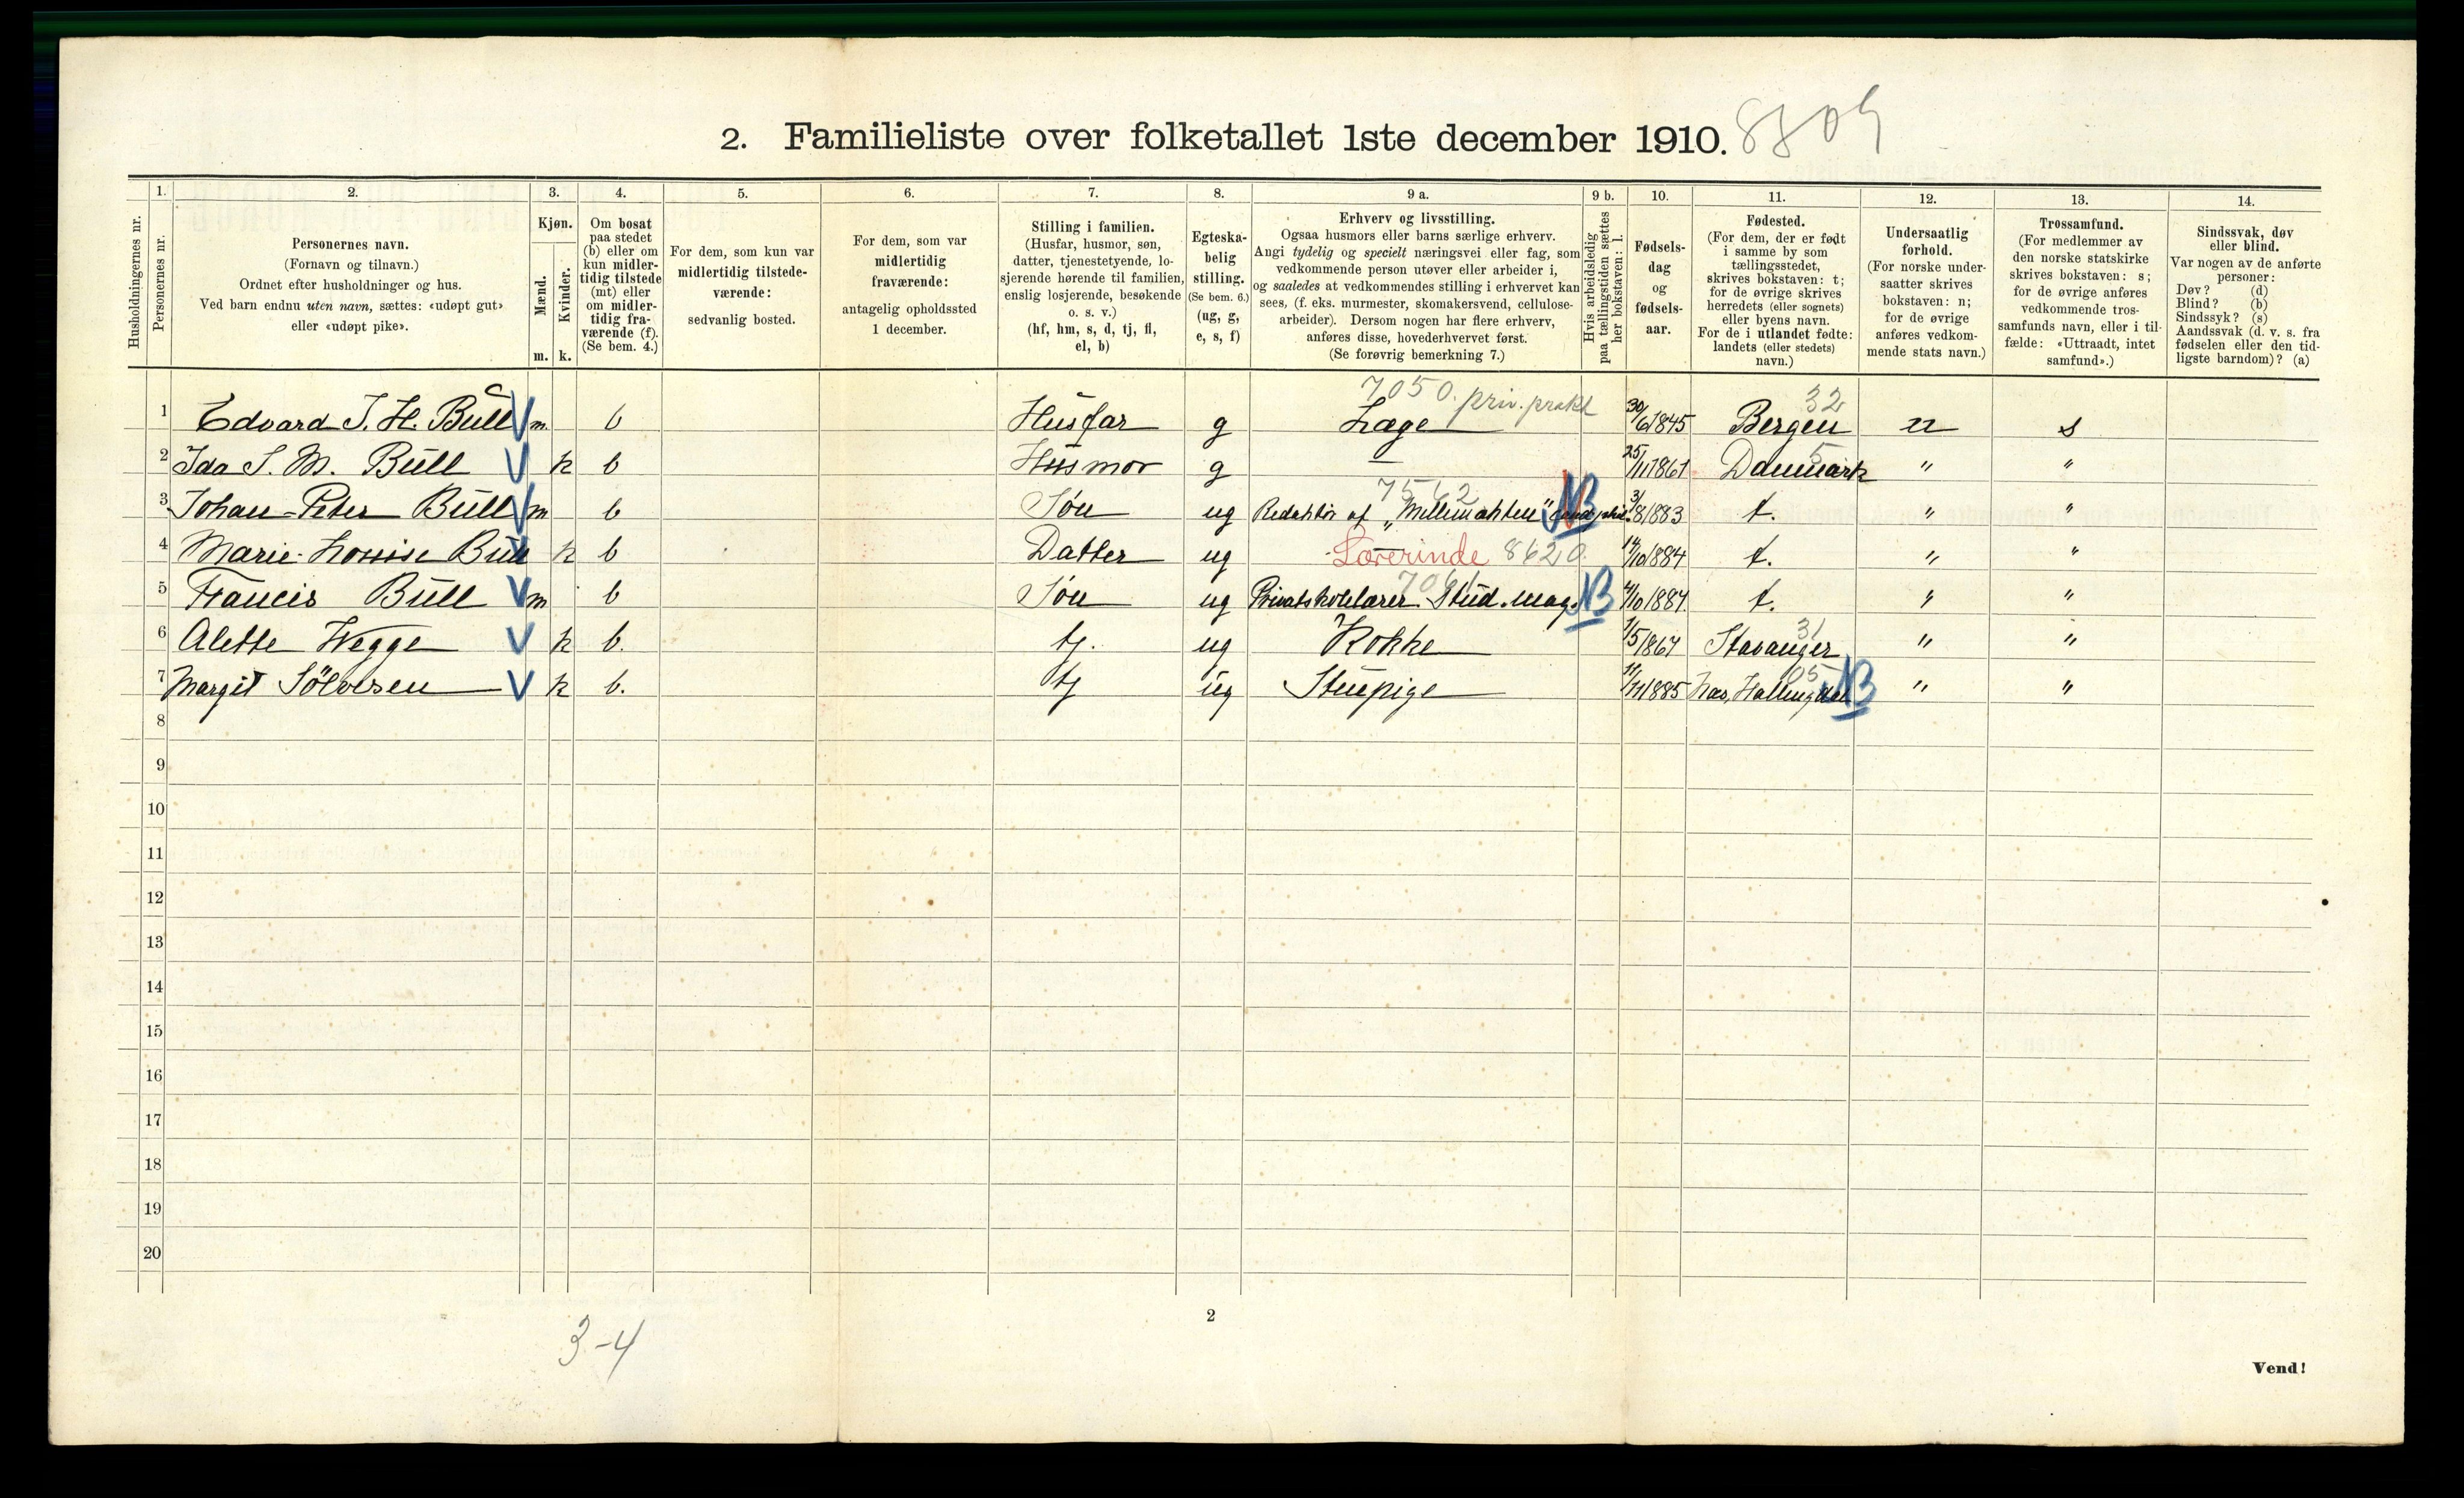 2. Familieliste over folketallet 1ste december 1910. 8809
Husholdningernes nr.
1. Personernes nr.
2. Personernes navn.
(Fornavn og tilnavn.)
Ordnet efter husholdninger og hus.
Ved barn endnu uten navn, sættes: «udøpt gut»
eller «udøpt pike».
3. Kjøn.
Mænd. m.
Kvinder. k.
4. Om bosat
paa stedet
(b) eller om
kun midler-
tidig tilstede
(mt) eller
om midler-
tidig fra-
værende (f).
(Se bem. 4.)
5. For dem, som kun var
midlertidig tilstede-
værende:
sedvanlig bosted.
6. For dem, som var
midlertidig
fraværende:
antagelig opholdssted
1 december.
7. Stilling i familien.
(Husfar, husmor, søn,
datter, tjenestetyende, lo-
sjerende hørende til familien,
enslig losjerende, besøkende
o. s. v.)
(hf, hm, s, d, tj, fl,
el, b)
8. Egteska-
belig
stilling.
(Se bem. 6.)
(ug, g,
e, s, f)
9 a. Erhverv og livsstilling.
Ogsaa husmors eller barns særlige erhverv.
Angi tydelig og specielt næringsvei eller fag, som
vedkommende person utøver eller arbeider i,
og saaledes at vedkommendes stilling i erhvervet kan
sees, (f. eks. murmester, skomakersvend, cellulose-
arbeider). Dersom nogen har flere erhverv,
anføres disse, hovederhvervet først.
(Se forøvrig bemerkning 7.)
9 b. Hvis arbeidsledig
paa tællingstiden sættes
her bokstaven: l.
10. Fødsels-
dag
og
fødsels-
aar.
11. Fødested.
(For dem, der er født
i samme by som
tællingsstedet,
skrives bokstaven: t;
for de øvrige skrives
herredets (eller sognets)
eller byens navn.
For de i utlandet fødte:
landets (eller stedets)
navn.)
12. Undersaatlig
forhold.
(For norske under-
saatter skrives
bokstaven: n;
for de øvrige
anføres vedkom-
mende stats navn.)
13. Trossamfund.
(For medlemmer av
den norske statskirke
skrives bokstaven: s;
for de øvrige anføres
vedkommende tros-
samfunds navn, eller i til-
fælde: «Uttraadt, intet
samfund».)
14. Sindssvak, døv
eller blind.
Var nogen av de anførte
personer:
Døv? (d)
Blind? (b)
Sindssyk? (s)
Aandssvak (d. v. s. fra
fødselen eller den tid-
ligste barndom)? (a)
7050. priv. prakt 32
1 Edvard I. H. Bull V m b Husfar g Læge 30/6 1845 Bergen n s
2 Ida S. M. Bull V k b Husmor g — 25/11 1861 Danmark 5 " "
7562
3 Johan-Peter Bull V m b Søn ug Redaktør af "Mellemakten" cand. phil. NB 3/8 1883 t. " "
4 Marie-Louise Bull V k b Datter ug Lærerinde 8620. 14/10 1884 t. " "
5 Francis Bull V m b Søn ug Privatskolelærer. Stud. mag. NB 4/10 1887 t. " "
6 Alette Wegge V k b. tj. ug Kokke 1/5 1867 Stavanger 31 " "
7 Margit Sölvesen V k b. tj ug Stuepige 11/11 1885 Næs, Hallingdal 05 NB " "
8
9
10
11
12
13
14
15
16
17
18
19
20
2
3-4
Vend!